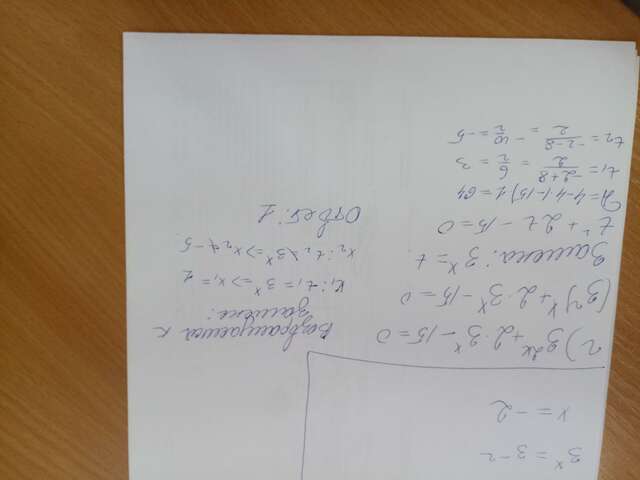 3^x = 3^-2
x = -2
2) 3^2x + 2·3^x - 15 = 0
(3^2)^x + 2·3^x - 15 = 0
Замена: 3^x = t
t² + 2t - 15 = 0
Д = 4-4·(-15)1 = 64
t₁ = (-2+8)/2 = 6/2 = 3
t₂ = (-2-8)/2 = -10/2 = -5
Возвращаемся к
замене:
x₁: t₁ = 3^x => x₁ = 1
x₂: t₂ 3^x => x₂ ≠ -5
Ответ: 1